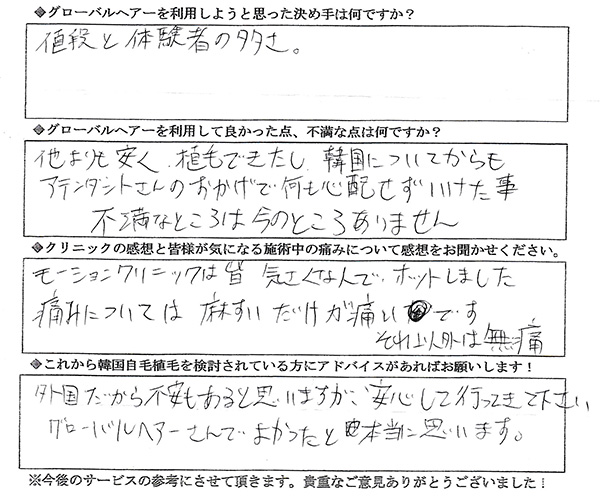 ◈グローバルヘアーを利用しようと思った決め手は何ですか？
値段と体験者の多さ。
◈グローバルヘアーを利用して良かった点、不満な点は何ですか？
他よりも安く、植毛できたし、韓国についてからも
アテンダントさんのおかげで何も心配せずいけた事
不満なところは今のところありません
◈クリニックの感想と皆様が気になる施術中の痛みについて感想をお聞かせください。
モーションクリニックは皆 気さくなんで、ホットしました
痛みについては 麻すいだけが痛いです
それ以外は無痛
◈これから韓国自毛植毛を検討されている方にアドバイスがあればお願いします！
外国だから不安もあると思いますが、安心して行ってきて下さい
グローバルヘアーさんでよかったと本当に思います。
※今後のサービスの参考にさせて頂きます。貴重なご意見ありがとうございました！